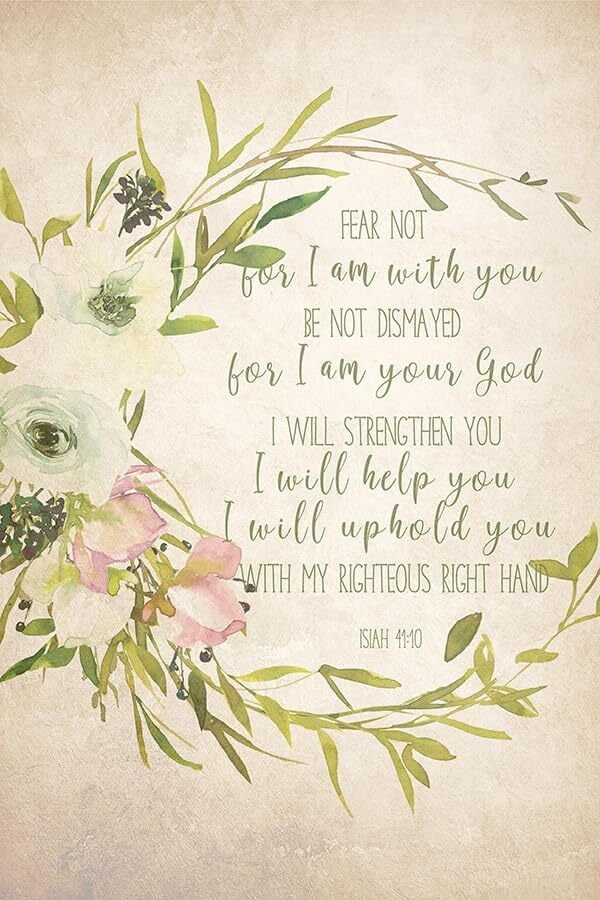 FEAR NOT
for I am with you
BE NOT DISMAYED
for I am your God
I WILL STRENGTHEN YOU
I will help you
I will uphold you
WITH MY RIGHTEOUS RIGHT HAND
ISIAH 41:10